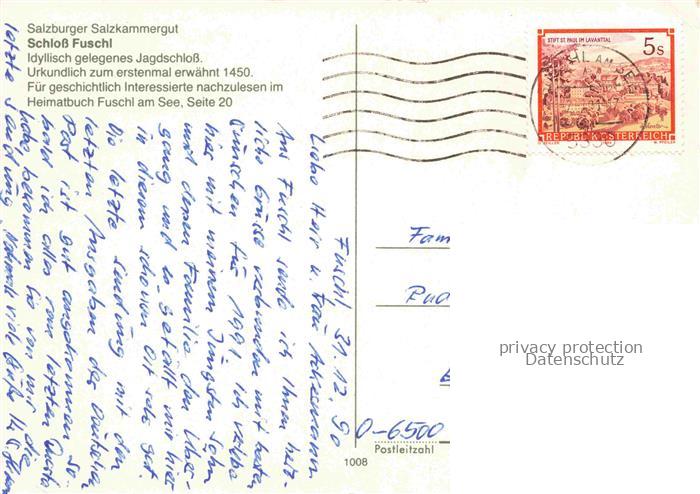 Salzburger Salzkammergut
Schloß Fuschl
Idyllisch gelegenes Jagdschloß.
Urkundlich zum erstenmal erwähnt 1450.
Für geschichtlich Interessierte nachzulesen im
Heimatbuch Fuschl am See, Seite 20
STIFT ST. PAUL IM LAVANTTAL
5s
REPUBLIK ÖSTERREICH
Fuschl 31.12.90
Liebe Herr u. Frau
Aus Fuschl sende ich Ihnen herz-
liche Grüsse verbunden mit besten
Wünschen für 1991. Ich verbringe
hier mit meinem Jüngsten Sohn
und deren Familie den Über-
gang und es gefällt mir hier
in diesem schönen Ort sehr gut.
Die letzte Sendung mit den
letzten Ausgaben der Deutschen
Post ist gut angekommen so-
bald ich alles vom letzten
habe, bekommen Sie von mir die
letzte Sendung. Nochmals viele Grüße
Fam
D-6500
Postleitzahl
1008
privacy protection
Datenschutz